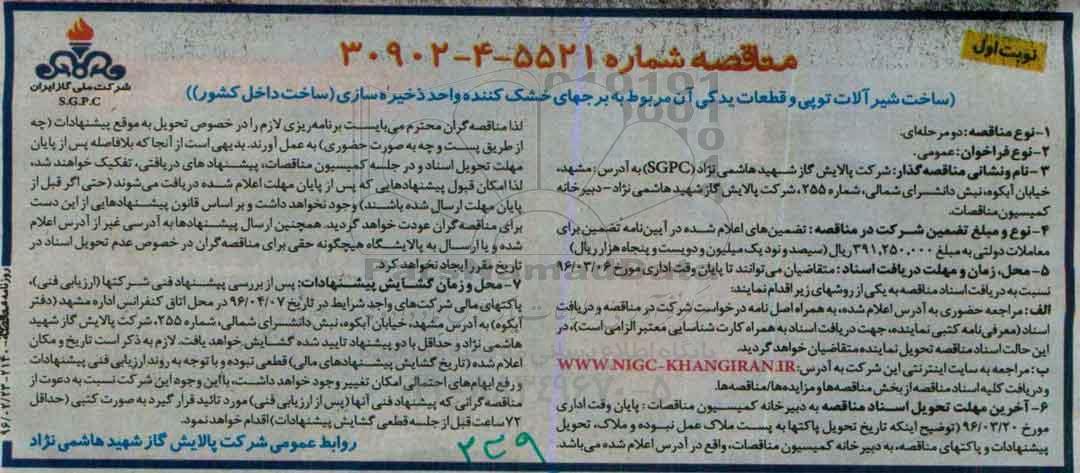 نوبت اول
مناقصه شماره ۵۵۲۱-۴-۳۰۹۰۲
شرکت ملی گاز ایران
S.G.P.C
(ساخت شیرآلات توپی و قطعات یدکی آن مربوط به برجهای خشک کننده واحد ذخیره سازی (ساخت داخل کشور))
۱-نوع مناقصه: دو مرحله‌ای.
۲-نوع فراخوان: عمومی.
۳-نام ونشانی مناقصه گذار: شرکت پالایش گاز شهید هاشمی نژاد (SGPC) به آدرس: مشهد،
خیابان آبکوه، نبش دانشسرای شمالی، شماره ۲۵۵، شرکت پالایش گاز شهید هاشمی نژاد-دبیرخانه
کمیسیون مناقصات.
۴-نوع و مبلغ تضمین شرکت در مناقصه: تضمین‌های اعلام شده در آیین‌نامه تضمین برای
معاملات دولتی به مبلغ ۳۹۱,۲۵۰,۰۰۰ ریال (سیصد و نود یک میلیون و دویست و پنجاه هزار ریال)
۵-محل، زمان و مهلت دریافت اسناد: متقاضیان می‌توانند تا پایان وقت اداری مورخ ۹۶/۰۳/۰۶
نسبت به دریافت اسناد مناقصه به یکی از روشهای زیر اقدام نمایند:
الف: مراجعه حضوری به آدرس اعلام شده، به همراه اصل نامه درخواست شرکت در مناقصه و دریافت
اسناد (معرفی نامه کتبی نماینده، جهت دریافت اسناد به همراه کارت شناسایی معتبر الزامی است)، در
این حالت اسناد مناقصه تحویل نماینده متقاضیان خواهد گردید.
ب: مراجعه به سایت اینترنتی این شرکت به آدرس: WWW.NIGC-KHANGIRAN.IR
و دریافت کلیه اسناد مناقصه از بخش مناقصه‌ها و مزایده‌ها/مناقصه‌ها.
۶-آخرین مهلت تحویل اسناد مناقصه به دبیرخانه کمیسیون مناقصات: پایان وقت اداری
مورخ ۹۶/۰۳/۲۰ (توضیح اینکه تاریخ تحویل پاکتها به پست ملاک عمل نبوده و ملاک، تحویل
پیشنهادات و پاکتهای مناقصه، به دبیرخانه کمیسیون مناقصات، واقع در آدرس اعلام شده می‌باشد.
لذا مناقصه‌گران محترم می‌بایست برنامه‌ریزی لازم را در خصوص تحویل به موقع پیشنهادات (چه
از طریق پست و چه به صورت حضوری) به عمل آورند. بدیهی است از آنجا که بلافاصله پس از پایان
مهلت تحویل اسناد و در جلسه کمیسیون مناقصات، پیشنهادهای دریافتی، تفکیک خواهند شد،
لذا امکان قبول پیشنهادهایی که پس از پایان مهلت اعلام شده دریافت می‌شوند (حتی اگر قبل از
پایان مهلت ارسال شده باشند) وجود نخواهد داشت و بر اساس قانون پیشنهادهایی از این دست
برای مناقصه‌گران عودت خواهد گردید. همچنین ارسال پیشنهادها به آدرسی غیر از آدرس اعلام
شده و یا ارسال به پالایشگاه هیچگونه حقی برای مناقصه‌گران در خصوص عدم تحویل اسناد در
تاریخ مقرر ایجاد نخواهد کرد.
۷-محل و زمان گشایش پیشنهادات: پس از بررسی پیشنهاد فنی شرکتها (ارزیابی فنی)،
پاکتهای مالی شرکت‌های واجد شرایط در تاریخ ۹۶/۰۴/۰۷ در محل اتاق کنفرانس اداره مشهد (دفتر
آبکوه) به آدرس مشهد، خیابان آبکوه، نبش دانشسرای شمالی، شماره ۲۵۵، شرکت پالایش گاز شهید
هاشمی نژاد و حداقل با دو پیشنهاد تایید شده گشایش خواهد یافت. لازم به ذکر است تاریخ و مکان
اعلام شده (تاریخ گشایش پیشنهادهای مالی) قطعی نبوده و با توجه به روند ارزیابی فنی پیشنهادات
و رفع ابهام‌های احتمالی امکان تغییر وجود خواهد داشت، با این وجود این شرکت نسبت به دعوت از
مناقصه‌گرانی که پیشنهاد فنی آنها (پس از ارزیابی فنی) مورد تائید قرار گیرد به صورت کتبی (حداقل
۷۲ ساعت قبل از جلسه قطعی گشایش پیشنهادات) اقدام خواهد نمود.
روابط عمومی شرکت پالایش گاز شهید هاشمی نژاد
۳۳۹